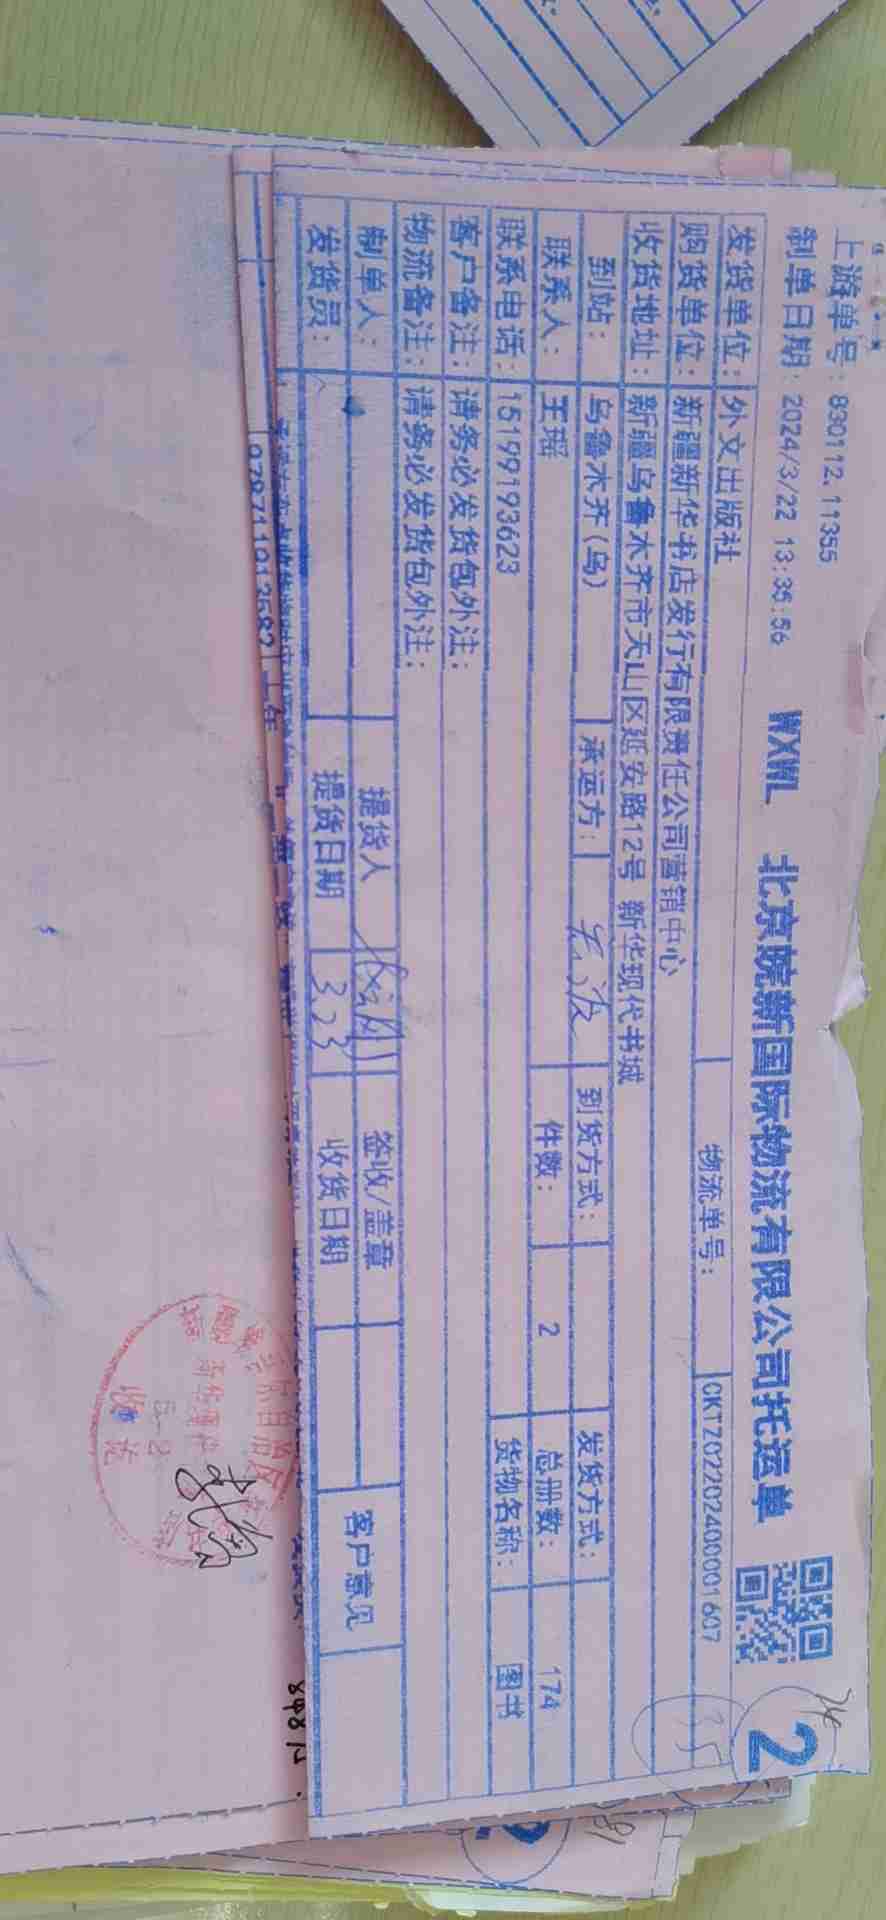 上游单号：830112.11355
制单日期：2024/3/22 13:35:56 WXWL 北京皖新国际物流有限公司托运单 2
发货单位：外文出版社 物流单号：CKTZ02202400001607
购货单位：新疆新华书店发行有限责任公司营销中心 35
收货地址：新疆乌鲁木齐市天山区延安路12号 新华现代书城
到站：乌鲁木齐(乌) 承运方： 到货方式： 发货方式：
联系人：王瑶 件数：2 总册数：174
联系电话：15199193623 货物名称：图书
客户备注：请务必发货包外注：
物流备注：请务必发货包外注：
制单人： 提货人 签收/盖章 客户意见
发货员： 提货日期 3.23 收货日期